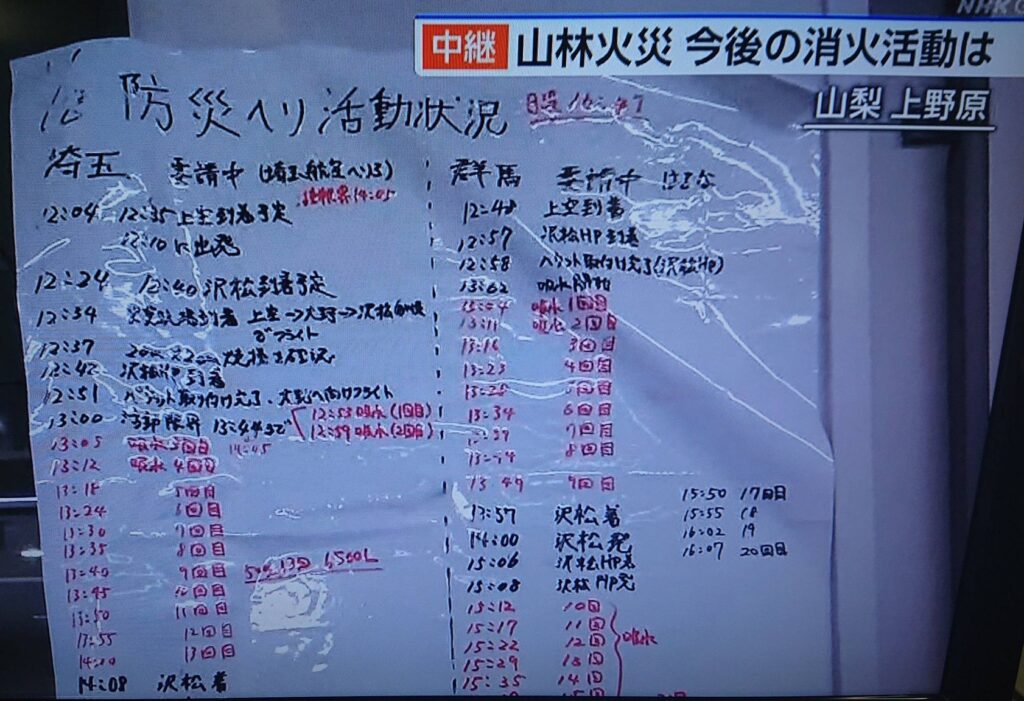 NHK G
中継 山林火災 今後の消火活動は
山梨 上野原
防災ヘリ活動状況
日没 16:
埼玉 要請中 (埼玉航空ヘリ3)
活動限界14:05
12:04 12:35上空到着予定
12:10に出発
12:24 12:40沢松到着予定
12:34
でフライト
12:37
12:42 沢松HP到着
12:51 バケット取り付け完了、大野へ向けフライト
13:00 活動限界 13:44まで
12:53 吸水(1回目)
12:59 吸水(2回目)
14:45
13:05 吸水3回目
13:12 吸水4回目
13:18 5回目
13:24 6回目
13:30 7回目
13:35 8回目
13:40 9回目
13:45 10回目
13:50 11回目
13:55 12回目
14:00 13回目
500×13回 6,500L
14:08 沢松着
群馬 要請中 はるな
12:48 上空到着
12:57 沢松HP到着
12:58 バケット取付け完了(沢松HP)
13:02 吸水開始
吸水 1回目
13:11 吸水 2回目
13:16 3回目
13:23 4回目
13:28 5回目
13:34 6回目
7回目
8回目
13:49 9回目
13:57 沢松着
14:00 沢松発
15:06 沢松HP着
15:08 沢松HP発
15:12 10回
15:17 11回
15:22 12回
15:29 13回
15:35 14回
吸水
15:50 17回目
15:55 18
16:02 19
16:07 20回目